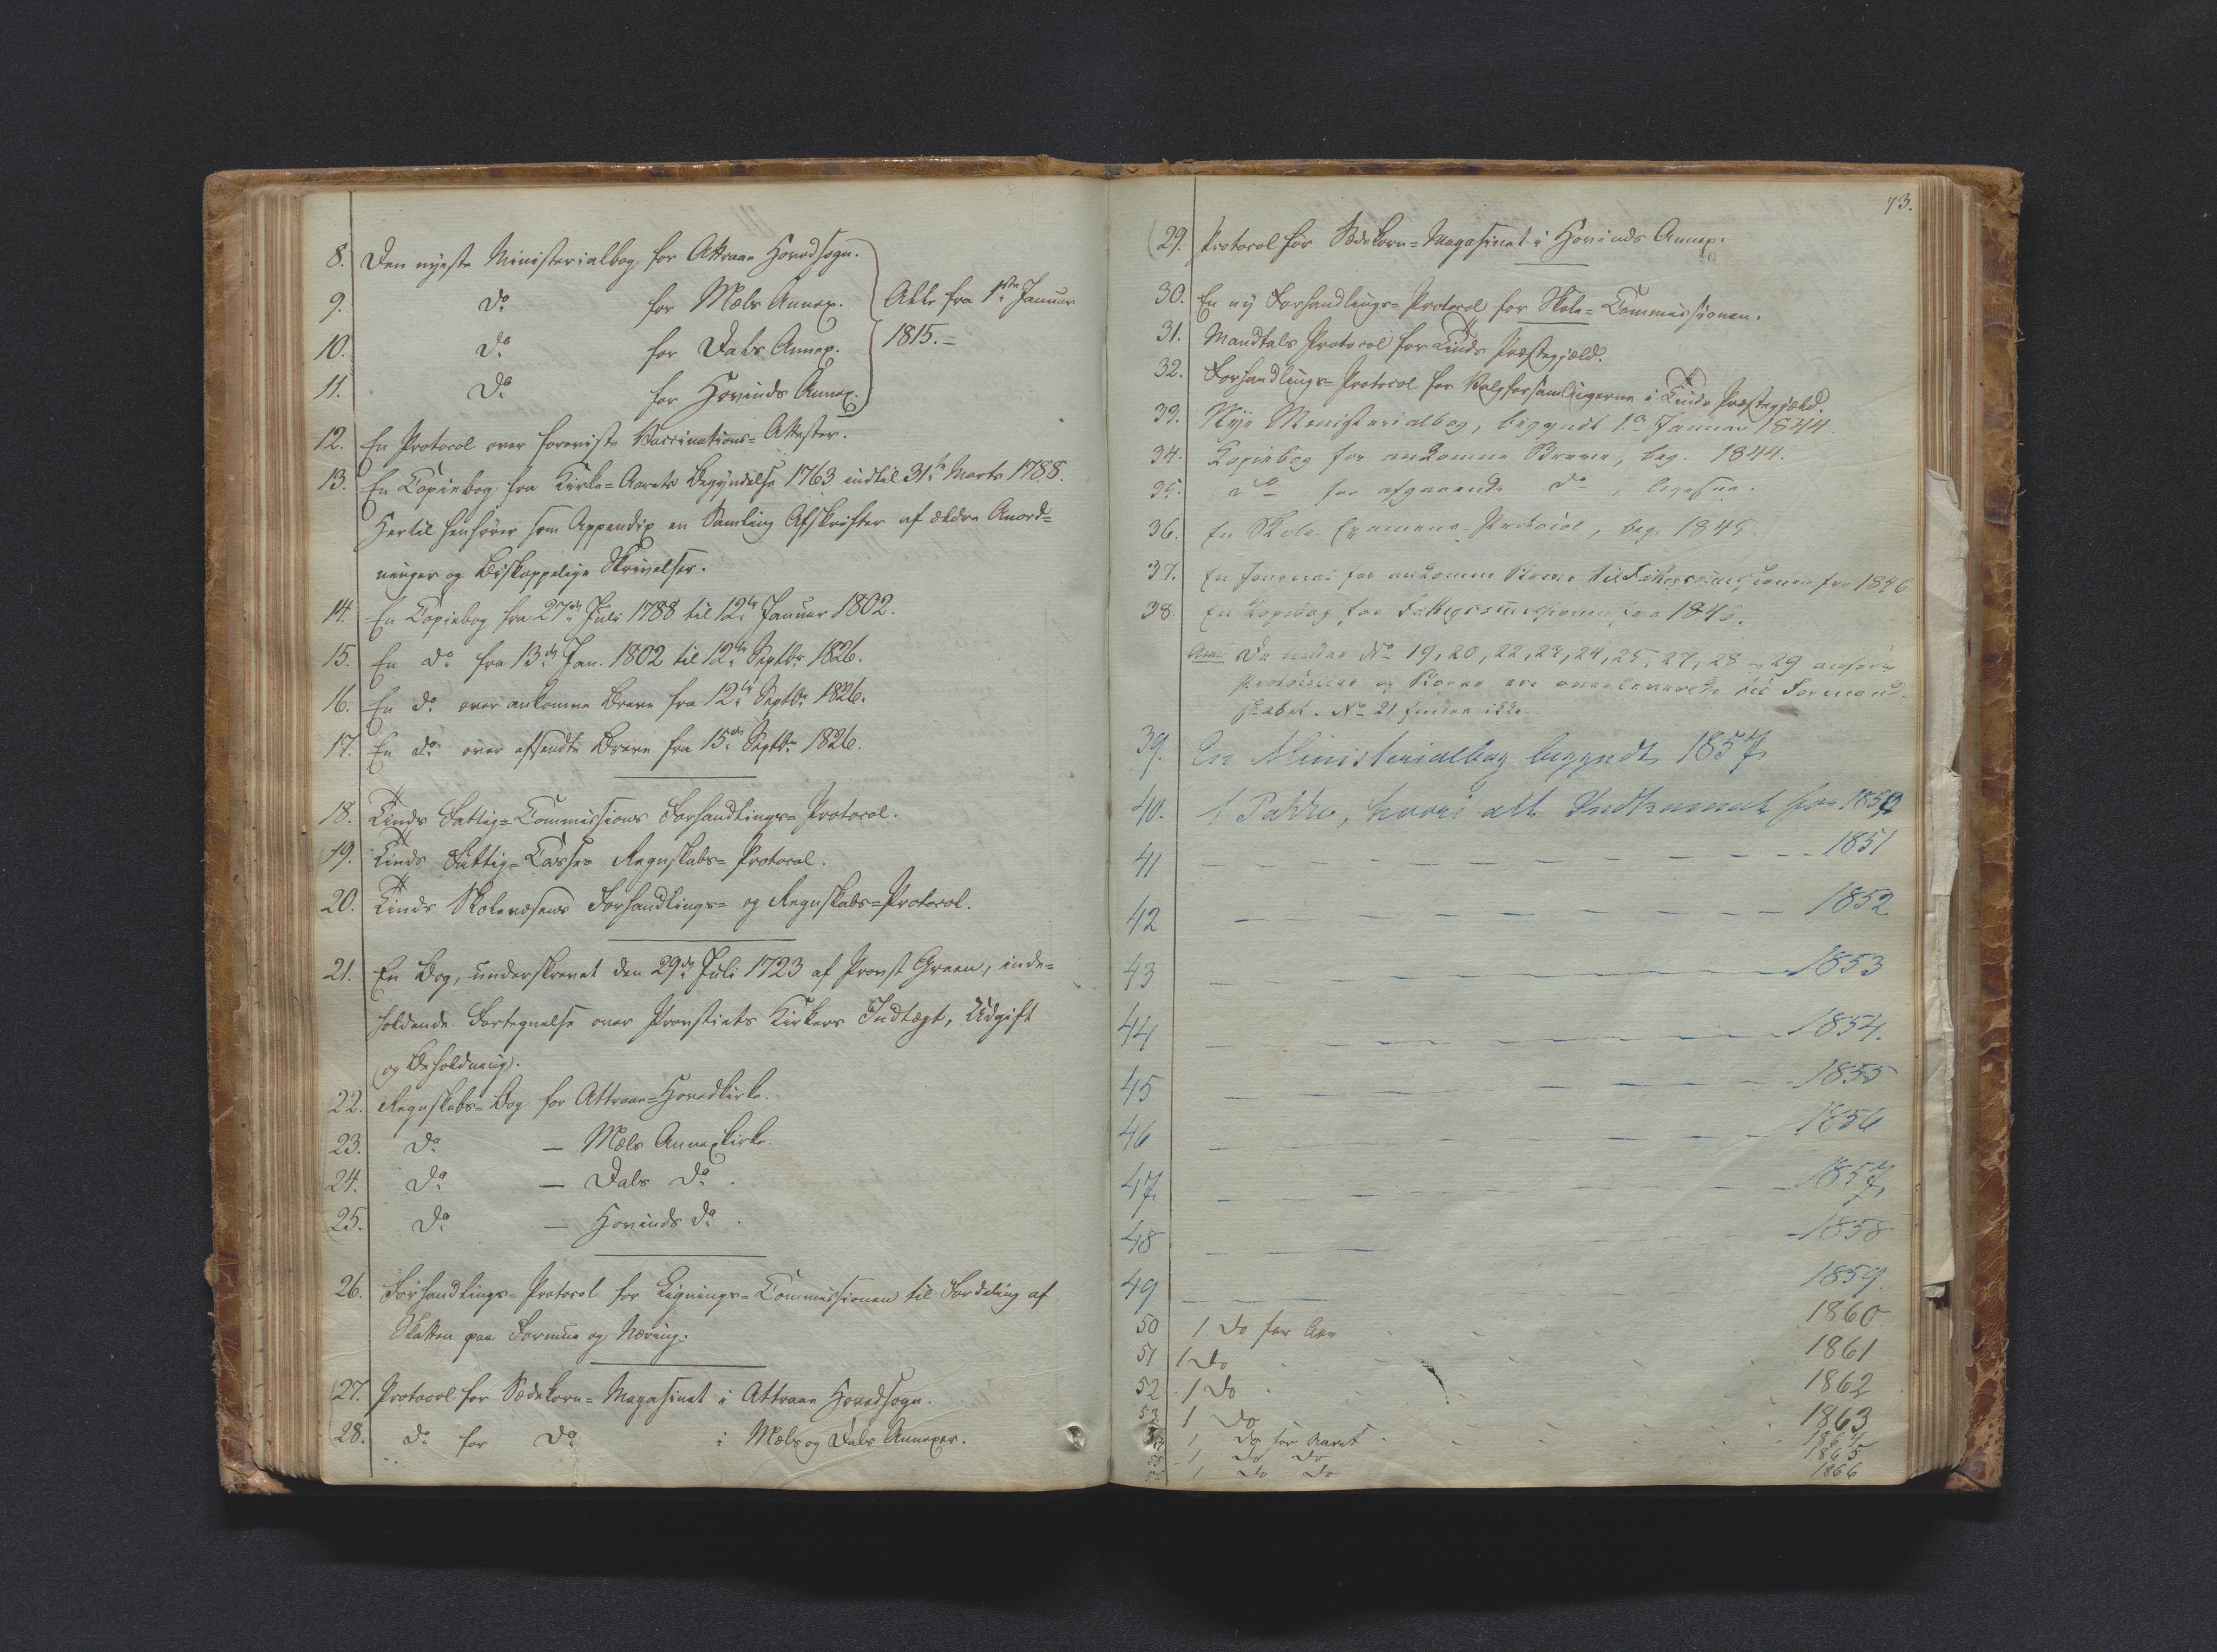 8. Den nyeste Ministerialbog for Attraae Hovedsogn.
9. Do for Mæls Annex. Alle fra 1ste Januar
10. Do for Dals Annex. 1815.=
11. Do for Hovinds Annex.
12. En Protocol over foreviste Vaccinations=Attester.
13. En Copiebog fra Kirke=Aarets Begyndelse 1763 indtil 31te Marts 1788.
Hertil henhører som Appendix en Samling Afskrifter af ældre Anord=
ninger og Biskoppelige Skrivelser.
14. En Copiebog fra 27de Juli 1788 til 12te Januar 1802.
15. En do fra 13de Jan. 1802 til 12te Septbr 1826.
16. En do over ankomne Breve fra 12te Septbr 1826.
17. En do over afsendte Breve fra 15de Septbr 1826.
18. Tinds Fattig=Commissions Forhandlings=Protocol.
19. Tinds Fattig=Casses Regnskabs=Protocol.
20. Tinds Skolevæsens Forhandlings= og Regnskabs=Protocol.
21. En Bog, underskrevet den 29de Juli 1723 af Provst Green, inde=
holdende Fortegnelse over Provstiets Kirkers Indtægt, Udgift
og Beholdning.
22. Regnskabs=Bog for Attraae=Hovedkirke.
23. Do — Mæls Annexkirke.
24. Do — Dals Do.
25. Do — Hovinds do.
26. Forhandlings=Protocol for Lignings=Commissionen til Fordeling af
Skatten paa Formue og Næring.
27. Protocol for Sædekorn=Magasinet i Attraae Hovedsogn.
28. do for Do i Mæls og Dals Annexer.
73.
29. Protocol for Sædekorn=Magasinet i Hovinds Annex.
30. En ny Forhandlings=Protocol for Skole=Commissionen.
31. Mandtals Protocol for Tinds Præstegjæld.
32. Forhandlings=Protocol for Valgforsamlingerne i Tinds Præstegjæld.
33. Nye Ministerialbog, begyndt 1a Januar 1844.
34. Kopiebog for ankomne Breve, beg. 1844.
35. do for afgaaende do,
36. En Skole Examens-Protocol, beg. 1845.
37. En Journal for ankomne Breve til Fattigcommissionen fra 1846
38. En Kopibog for Fattigcommissionen fra 1846.
Anm: De under No 19, 20, 22, 23, 24, 25, 27, 28 og 29 anførte
Protocoller og Bøger ere overleverede til Formand=
skabet. No 21 findes ikke.
39. En Ministerialbog begyndt 1857
40. 1 Pakke, hvori alt Indkommet for 1850
41 — 1851
42 — 1852
43 — 1853
44 — 1854.
45 — 1855
46 — 1856
47 — 1857
48 — 1858
49 — 1859.
50 1 Do for Aar 1860
51 1 Do 1861
52 1 Do 1862
53 1 Do 1863
54 1 Do for Aaret 1864
55 1 Do Do 1865
56 1 Do Do 1866